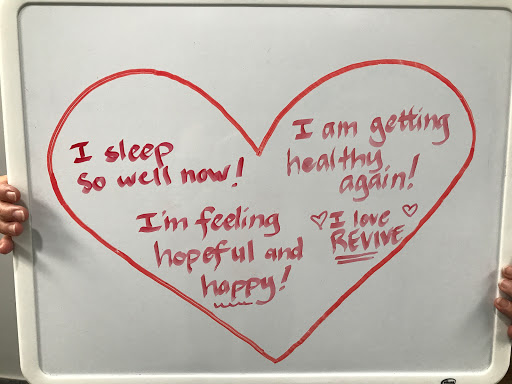 I sleep
so well now!
I am getting
healthy
again!
I'm feeling
hopeful and
happy!
♡ I love ♡
REVIVE